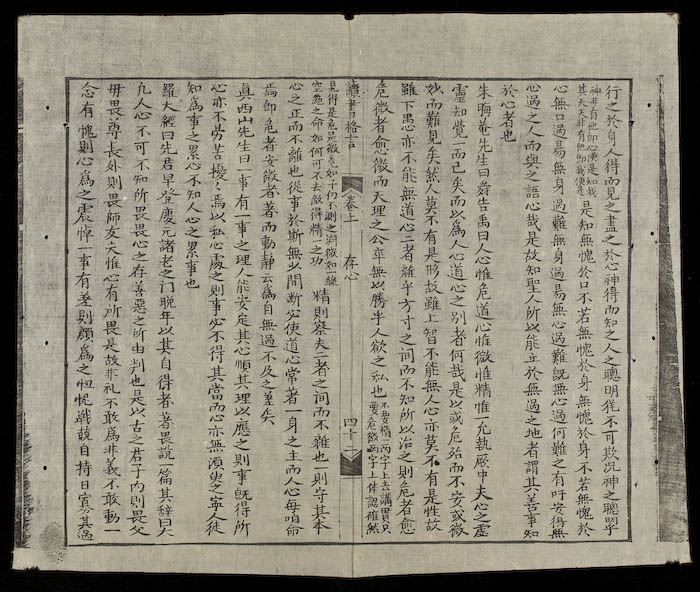 行之於身人得而見之盡之於心神得而知之人之聰明猶不可欺況神之聰明乎
神非有他即心便是知我
其天天非有他即我便是
是知無愧於口不若無愧於身無愧於身不若無愧於
心無口過易無身過難無身過易無心過難旣無心過何難之有吁安得無
心過之人而與之語心哉是故知聖人所以能立於無過之地者謂其善事知
於心者也
朱晦菴先生曰舜告禹曰人惟危道心惟微惟精惟一允執厥中夫心之虛
靈知覺一而已矣而以為人心道心之別者何哉是以或危殆而不安或微
妙而難見矣然人莫不有是形故雖上智不能無人心亦莫不有是性故
雖下愚心亦不能無道心二者雜乎方寸之間而不知所以治之則危者愈
危微者愈微而天理之公卒無以勝乎人欲之私也
不要精一兩字上去講貫只
要危微兩字上体認確然
讀書格言 卷上 存心 四十二
見得是危是微危如予向不測之淵微如綫
空懸之命如何可不去做得精一之功
精則察夫二者之間而不雜也一則守其本
心之正而不離也從事於斯無少間斷必使道心常者一身之主而人心每咱命
焉卽危者安微者著而動靜云為自無過不及之差矣
真西山先生曰一事有一事之理人能安定其心順其理以應之則事旣得所
心亦不勞苦擾〻焉以私心處之則事必不得其當而心亦無須臾之寧人徒
知為事之累心不知人心之累事也
羅大經曰先君早登慶元諸老之門晚年以其自得者著畏說一篇其辞曰大
凡人心不可不知所畏畏心之存善惡之所由判也是以古之君子內則畏父
母畏尊長外則畏師友文惟心有所畏是故非礼不敢為非義不敢動一
念有愧則心為之震悼一事有差則顏為之忸怩戰兢自持日其過